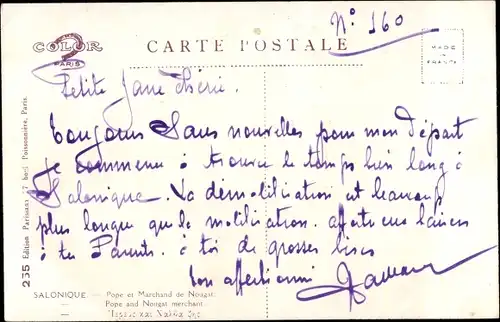 N° 160
COLOR
PARIS
CARTE POSTALE
MADE IN FRANCE
Petite Jane Chérie.
Toujours Sans nouvelles pour mon départ
Je commence à trouver le temps bien long à
Salonique. La démobilisation est beaucoup
plus longue que la mobilisation.
à tes Parents. à toi de grosses bises
Ton affectionné
235 Edition Parisiana 17 boul. Poissonnière, Paris.
SALONIQUE. — Pope et Marchand de Nougat.
— Pope and Nougat merchant.